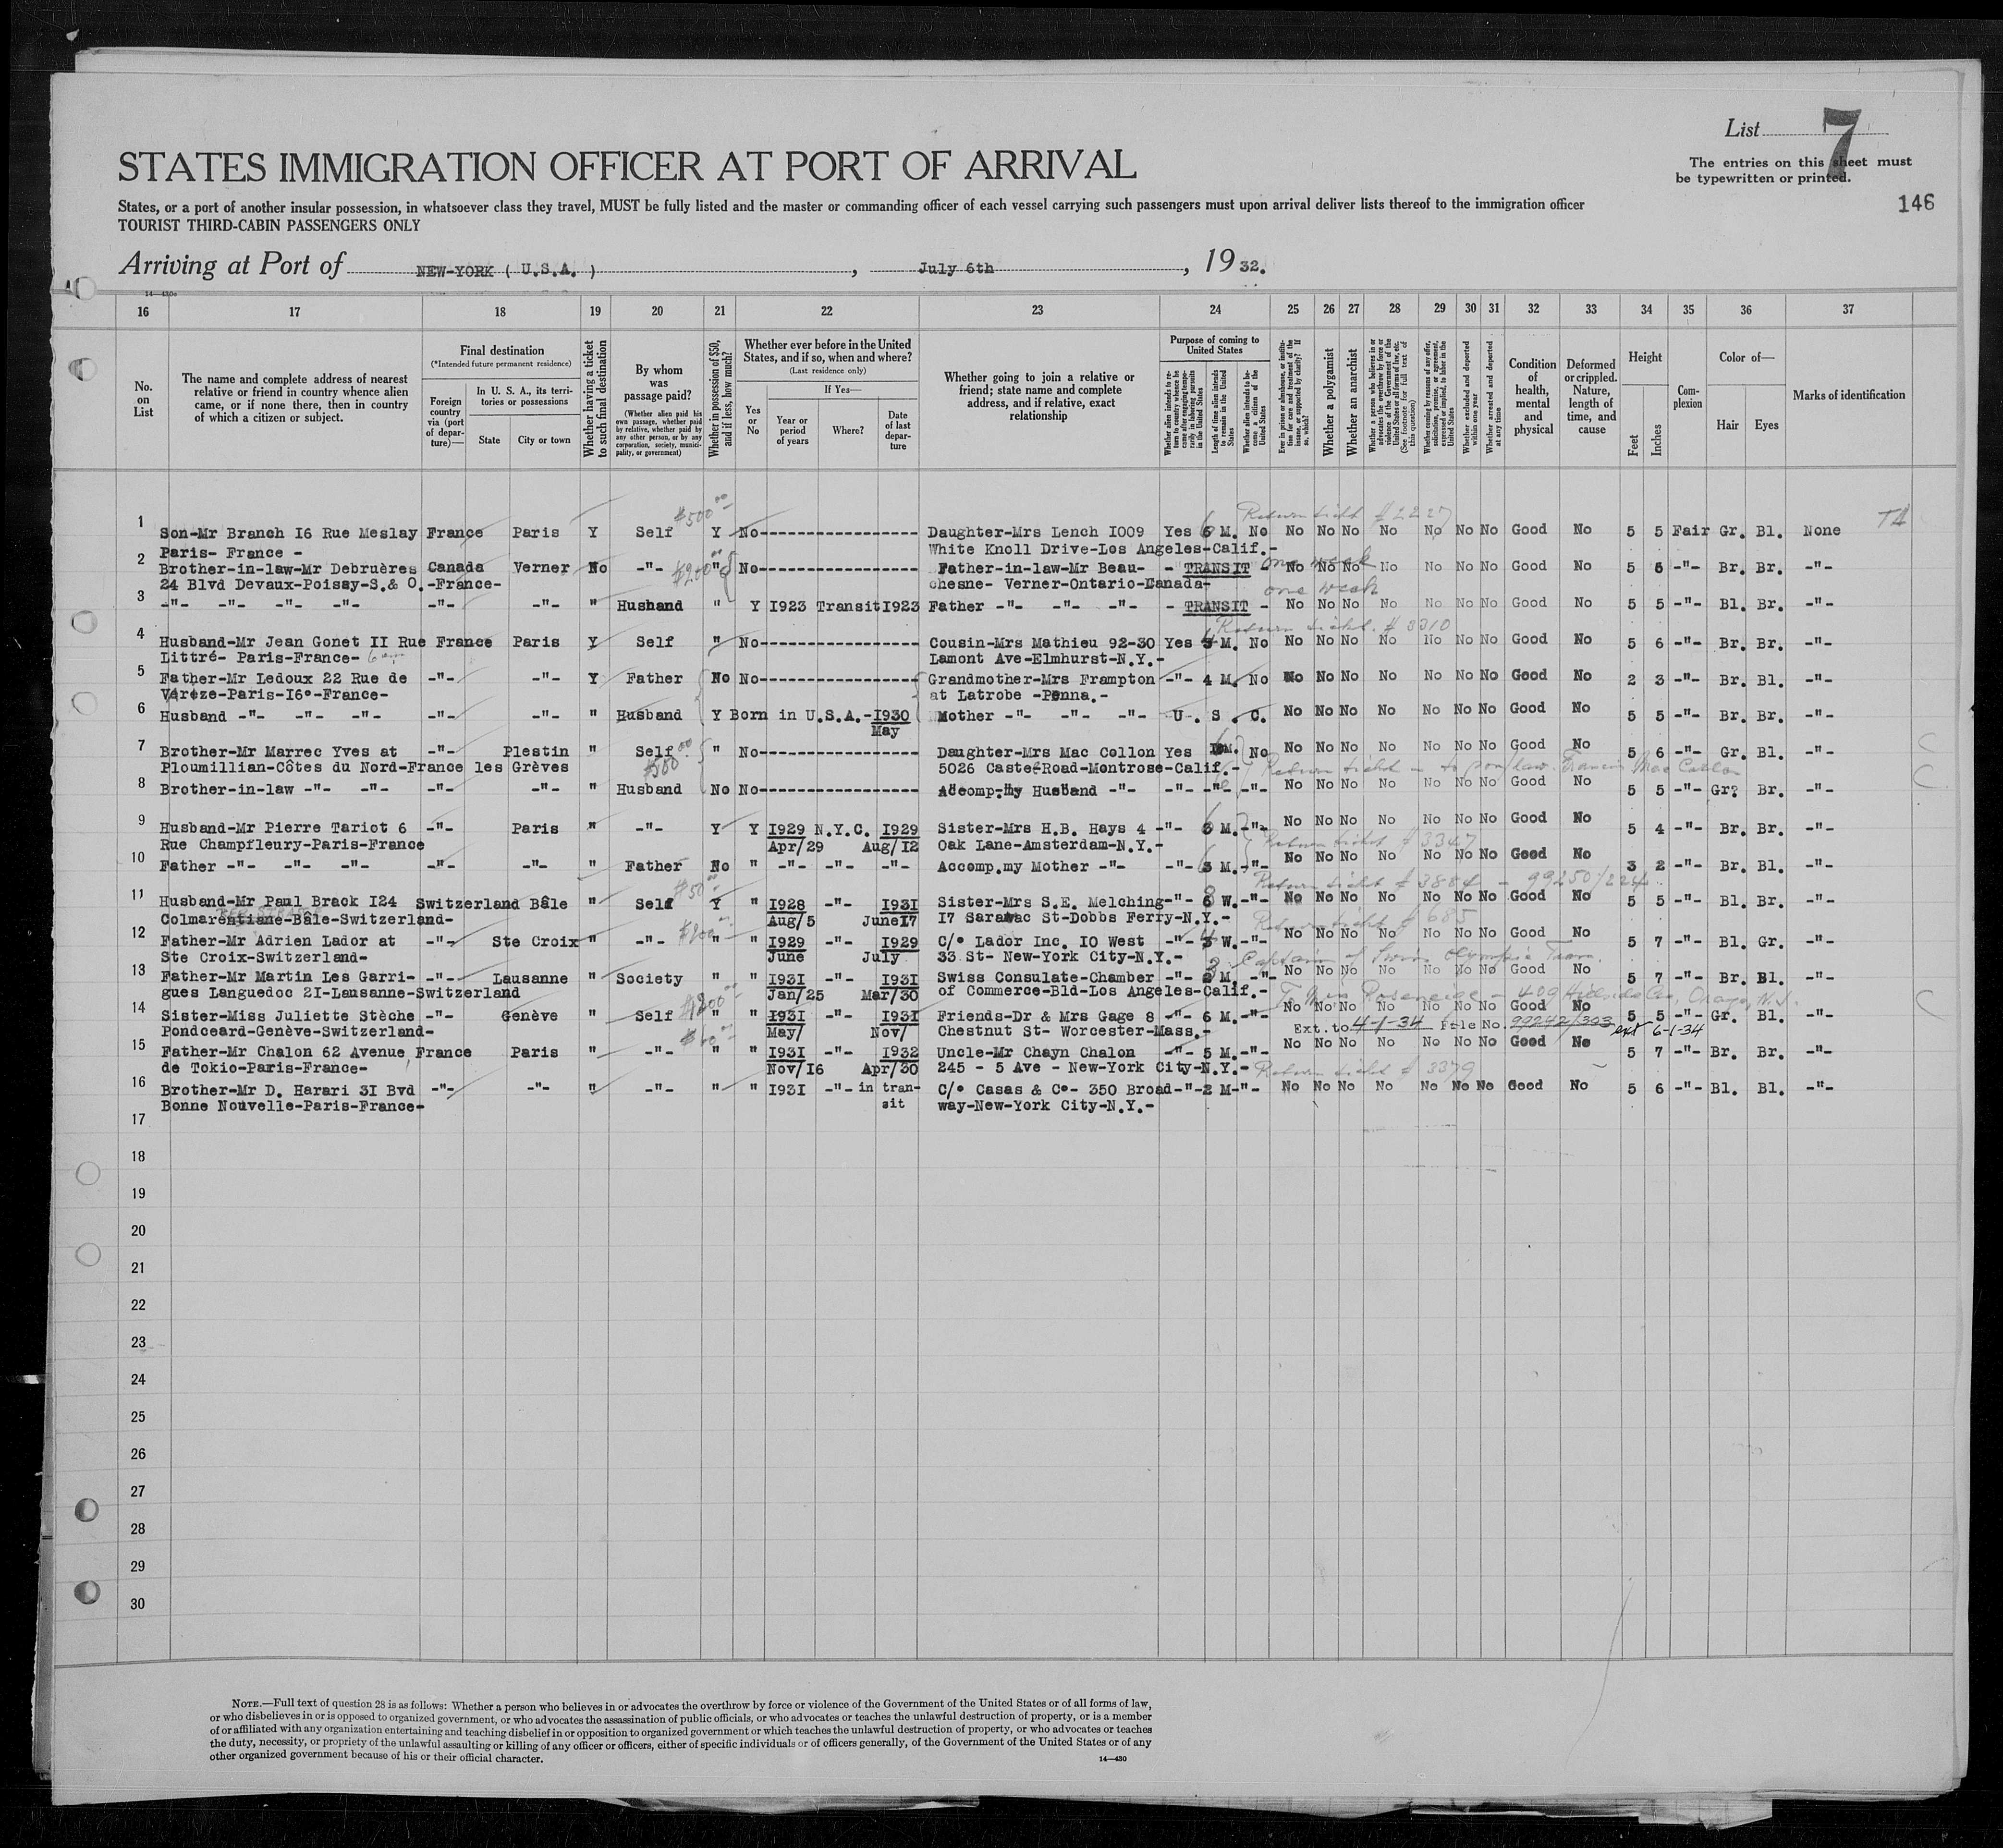 List 7
STATES IMMIGRATION OFFICER AT PORT OF ARRIVAL
The entries on this sheet must
be typewritten or printed.
146
States, or a port of another insular possession, in whatsoever class they travel, MUST be fully listed and the master or commanding officer of each vessel carrying such passengers must upon arrival deliver lists thereof to the immigration officer
TOURIST THIRD-CABIN PASSENGERS ONLY
Arriving at Port of NEW-YORK ( U.S.A. ) , July 6th , 19 32.
16 17 18 19 20 21 22 23 24 25 26 27 28 29 30 31 32 33 34 35 36 37
No. on List
The name and complete address of nearest relative or friend in country whence alien came, or if none there, then in country of which a citizen or subject.
Final destination
(*Intended future permanent residence)
Foreign country via (port of departure)—
In U. S. A., its territories or possessions
State
City or town
Whether having a ticket to such final destination
By whom was passage paid?
(Whether alien paid his own passage, whether paid by relative, whether paid by any other person, or by any corporation, society, municipality, or government)
Whether in possession of $50, and if less, how much?
Whether ever before in the United States, and if so, when and where?
(Last residence only)
Yes or No
If Yes—
Year or period of years
Where?
Date of last departure
Whether going to join a relative or friend; state name and complete address, and if relative, exact relationship
Purpose of coming to United States
Whether alien intends to return to country whence he came after engaging temporarily in laboring pursuits in the United States
Length of time alien intends to remain in the United States
Whether alien intends to become a citizen of the United States
Ever in prison or almshouse, or institution for care and treatment of the insane, or supported by charity? If so, which?
Whether a polygamist
Whether an anarchist
Whether a person who believes in or advocates the overthrow by force or violence of the Government of the United States or all forms of law, etc. (See footnote for full text of this question)
Whether coming by reason of any offer, solicitation, promise, or agreement, expressed or implied, to labor in the United States
Whether excluded and deported within one year
Whether arrested and deported at any time
Condition of health, mental and physical
Deformed or crippled. Nature, length of time, and cause
Height
Feet Inches
Complexion
Color of—
Hair Eyes
Marks of identification
1 Son-Mr Branch I6 Rue Meslay France Paris Y Self $500 Y No Daughter-Mrs Lench I009 Yes 6 M. No No No No No No No No Good No 5 5 Fair Gr. Bl. None
Paris- France - White Knoll Drive-Los Angeles-Calif.-
2 Brother-in-law-Mr Debruères Canada Verner No -"- " No Father-in-law-Mr Beau- - TRANSIT - No No No No No No No Good No 5 6 -"- Br. Br. -"-
24 Blvd Devaux-Poissy-S.& O.-France- chesne- Verner-Ontario-Canada-
one week
3 -"- -"- -"- -"- -"- -"- " Husband " Y I923 Transit I923 Father -"- -"- -"- - TRANSIT - No No No No No No No Good No 5 5 -"- Bl. Br. -"-
Return ticket # 3310
4 Husband-Mr Jean Gonet II Rue France Paris Y Self " No Cousin-Mrs Mathieu 92-30 Yes M. No No No No No No No No Good No 5 6 -"- Br. Br. -"-
Littré- Paris-France- Lamont Ave-Elmhurst-N.Y.-
5 Father-Mr Ledoux 22 Rue de -"- -"- Y Father No No Grandmother-Mrs Frampton -"- 4 M. No No No No No No No No Good No 2 3 -"- Br. Bl. -"-
Varèze-Paris-I6°-France- at Latrobe -Penna.-
6 Husband -"- -"- -"- -"- -"- " Husband Y Born in U.S.A.-I930 Mother -"- -"- -"- U. S. C. No No No No No No No Good No 5 5 -"- Br. Br. -"-
May
7 Brother-Mr Marrec Yves at -"- Plestin " Self " No Daughter-Mrs Mac Collon Yes M. No No No No No No No No Good No 5 6 -"- Gr. Bl. -"-
Ploumillian-Côtes du Nord-France les Grèves $500 5026 Castel Road-Montrose-Calif.-
8 Brother-in-law -"- -"- -"- -"- " Husband No No Accomp.my Husband -"- -"- -"- -"- No No No No No No No Good No 5 5 -"- Gr. Br. -"-
9 Husband-Mr Pierre Tariot 6 -"- Paris " -"- Y Y I929 N.Y.C. I929 Sister-Mrs H.B. Hays 4 -"- M. -"- No No No No No No No Good No 5 4 -"- Br. Br. -"-
Rue Champfleury-Paris-France Apr/29 Aug/I2 Oak Lane-Amsterdam-N.Y.-
Return ticket # 3347
10 Father -"- -"- -"- -"- -"- " Father No " -"- -"- -"- Accomp.my Mother -"- -"- M. -"- No No No No No No No Good No 3 2 -"- Br. Bl. -"-
Return ticket # 3884 - 99250/224
11 Husband-Mr Paul Brack I24 Switzerland Bâle " Self $50 Y " I928 -"- I93I Sister-Mrs S.E. Melching -"- W. -"- No No No No No No No Good No 5 5 -"- Bl. Br. -"-
Colmarentiane-Bâle-Switzerland- Aug/5 June I7 I7 Saranac St-Dobbs Ferry-N.Y.-
Return ticket # 685
12 Father-Mr Adrien Lador at -"- Ste Croix " -"- " " I929 -"- I929 C/° Lador Inc. IO West -"- W. -"- No No No No No No No Good No 5 7 -"- Bl. Gr. -"-
Ste Croix-Switzerland- June July 33 St- New-York City-N.Y.-
Captain of Swiss Olympic Team.
13 Father-Mr Martin Les Garri- -"- Lausanne " Society " " I93I -"- I93I Swiss Consulate-Chamber -"- M. -"- No No No No No No No Good No 5 7 -"- Br. Bl. -"-
gues Languedoc 2I-Lausanne-Switzerland Jan/25 Mar/30 of Commerce-Bld-Los Angeles-Calif.-
14 Sister-Miss Juliette Stèche -"- Genève " Self " " I93I -"- I93I Friends-Dr & Mrs Gage 8 -"- 6 M. -"- No No No No No No No Good No 5 5 -"- Gr. Bl. -"-
Pondceard-Genève-Switzerland- May/ Nov/ Chestnut St- Worcester-Mass.- Ext. to 4-1-34 File No. 99242/303 ext 6-1-34
15 Father-Mr Chalon 62 Avenue France Paris " -"- " " I93I -"- I932 Uncle-Mr Chayn Chalon -"- 5 M. -"- No No No No No No No Good No 5 7 -"- Br. Br. -"-
de Tokio-Paris-France- Nov/I6 Apr/30 245 - 5 Ave - New-York City-N.Y.-
Return ticket # 3379
16 Brother-Mr D. Harari 3I Bvd -"- -"- " -"- " " I93I -"- in tran- C/° Casas & C°- 350 Broad- -"- 2 M -"- No No No No No No No Good No 5 6 -"- Bl. Bl. -"-
Bonne Nouvelle-Paris-France- sit way-New-York City-N.Y.-
17
18
19
20
21
22
23
24
25
26
27
28
29
30
NOTE.—Full text of question 28 is as follows: Whether a person who believes in or advocates the overthrow by force or violence of the Government of the United States or of all forms of law,
or who disbelieves in or is opposed to organized government, or who advocates the assassination of public officials, or who advocates or teaches the unlawful destruction of property, or is a member
of or affiliated with any organization entertaining and teaching disbelief in or opposition to organized government or which teaches the unlawful destruction of property, or who advocates or teaches
the duty, necessity, or propriety of the unlawful assaulting or killing of any officer or officers, either of specific individuals or of officers generally, of the Government of the United States or of any
other organized government because of his or their official character.
14—430